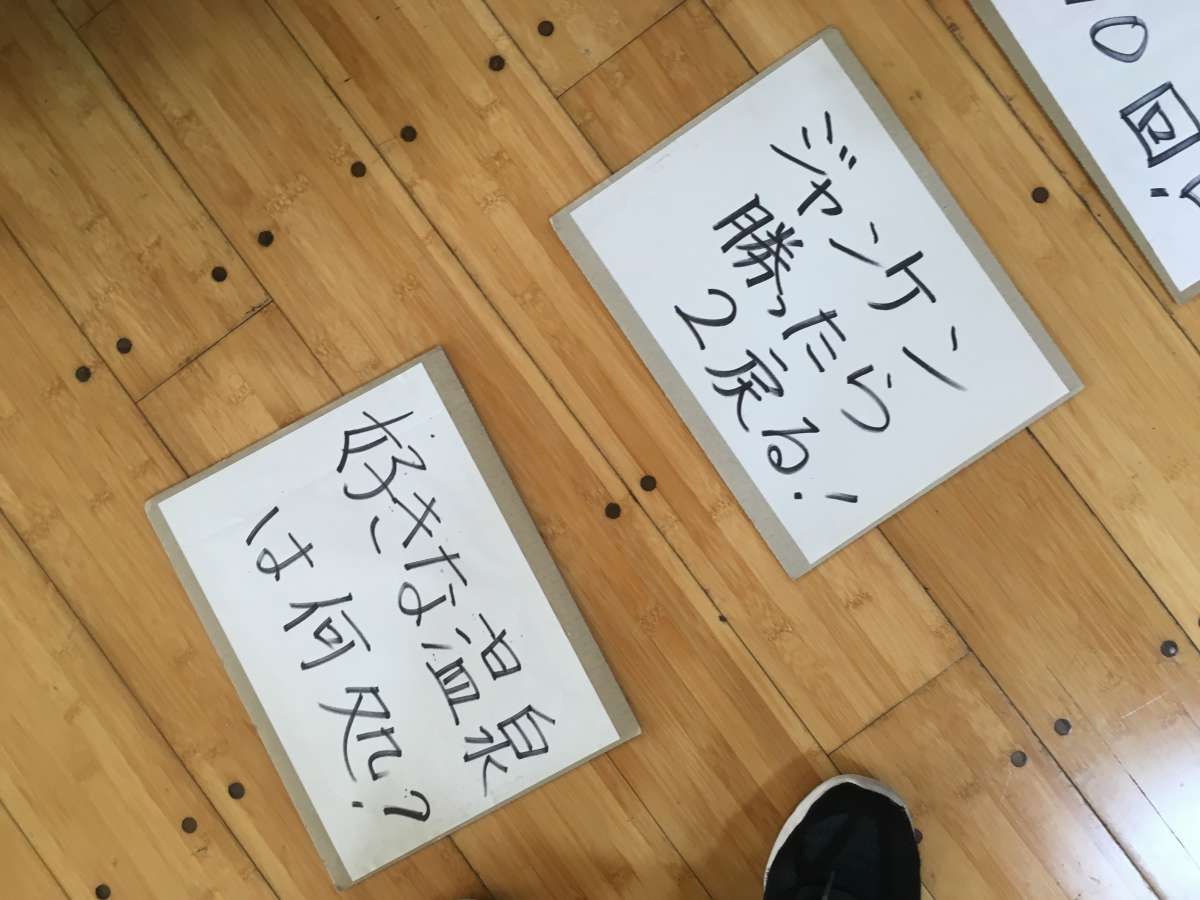 ジャンケン
勝ったら
2戻る!
好きな温泉
は何処?
0回